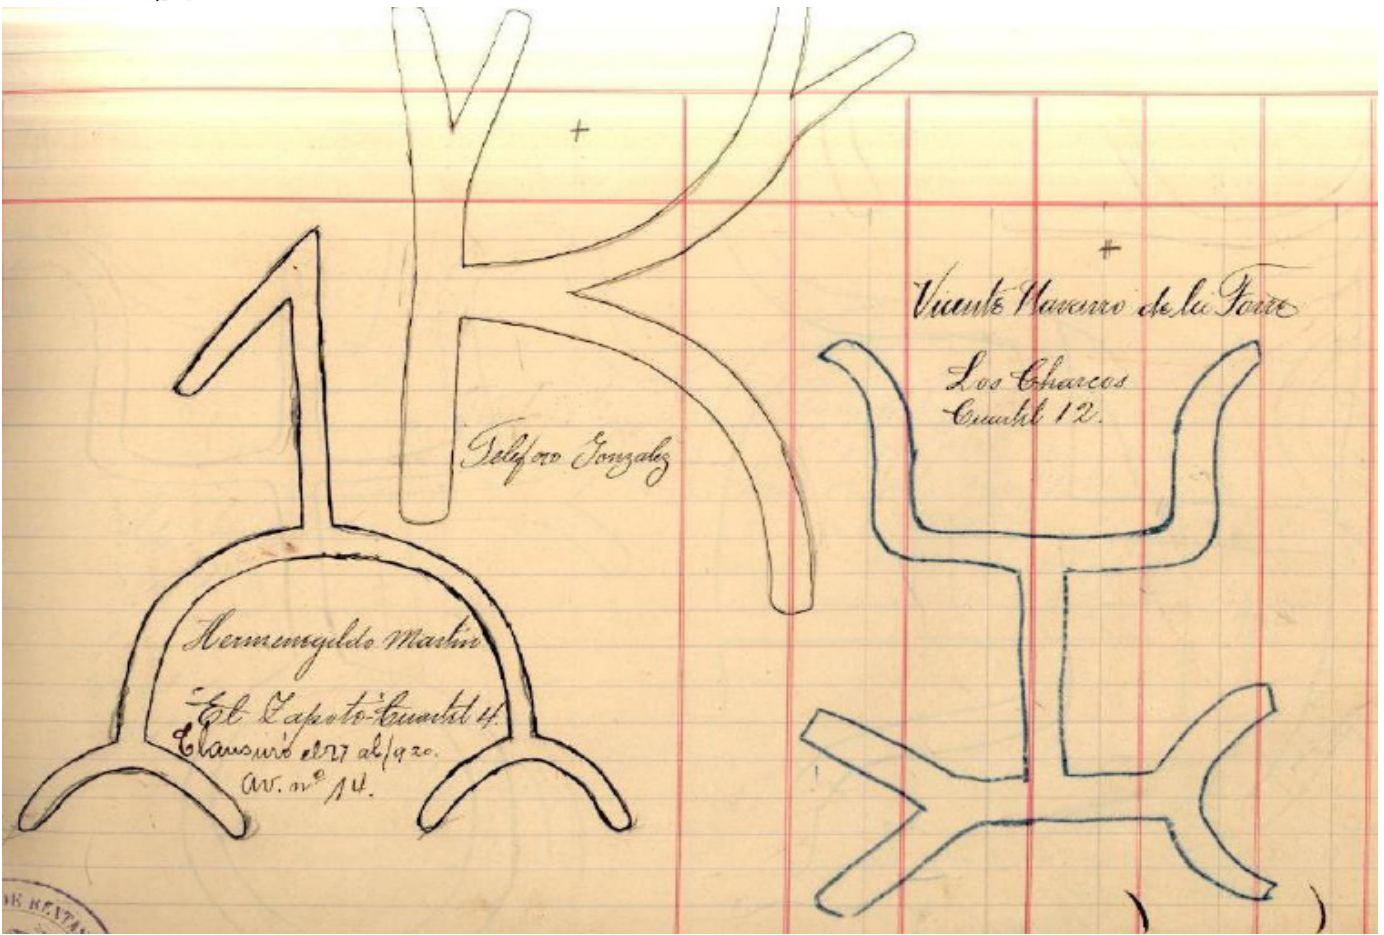 Vicente Navarro de la Torre
Los Charcos
Cuartel 12.
Telesforo Gonzalez
Hermenegildo Martin
El Zapote Cuartel 4.
Clausuró el 27 ab/920.
av. nº 14.
DE RENTAS